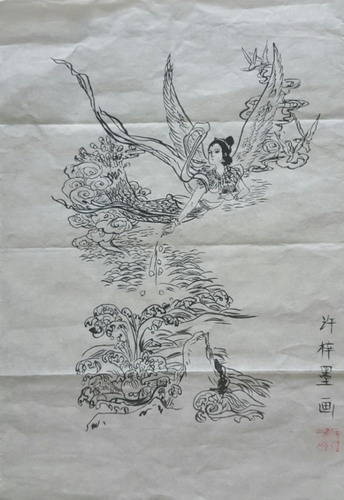 许梓墨画